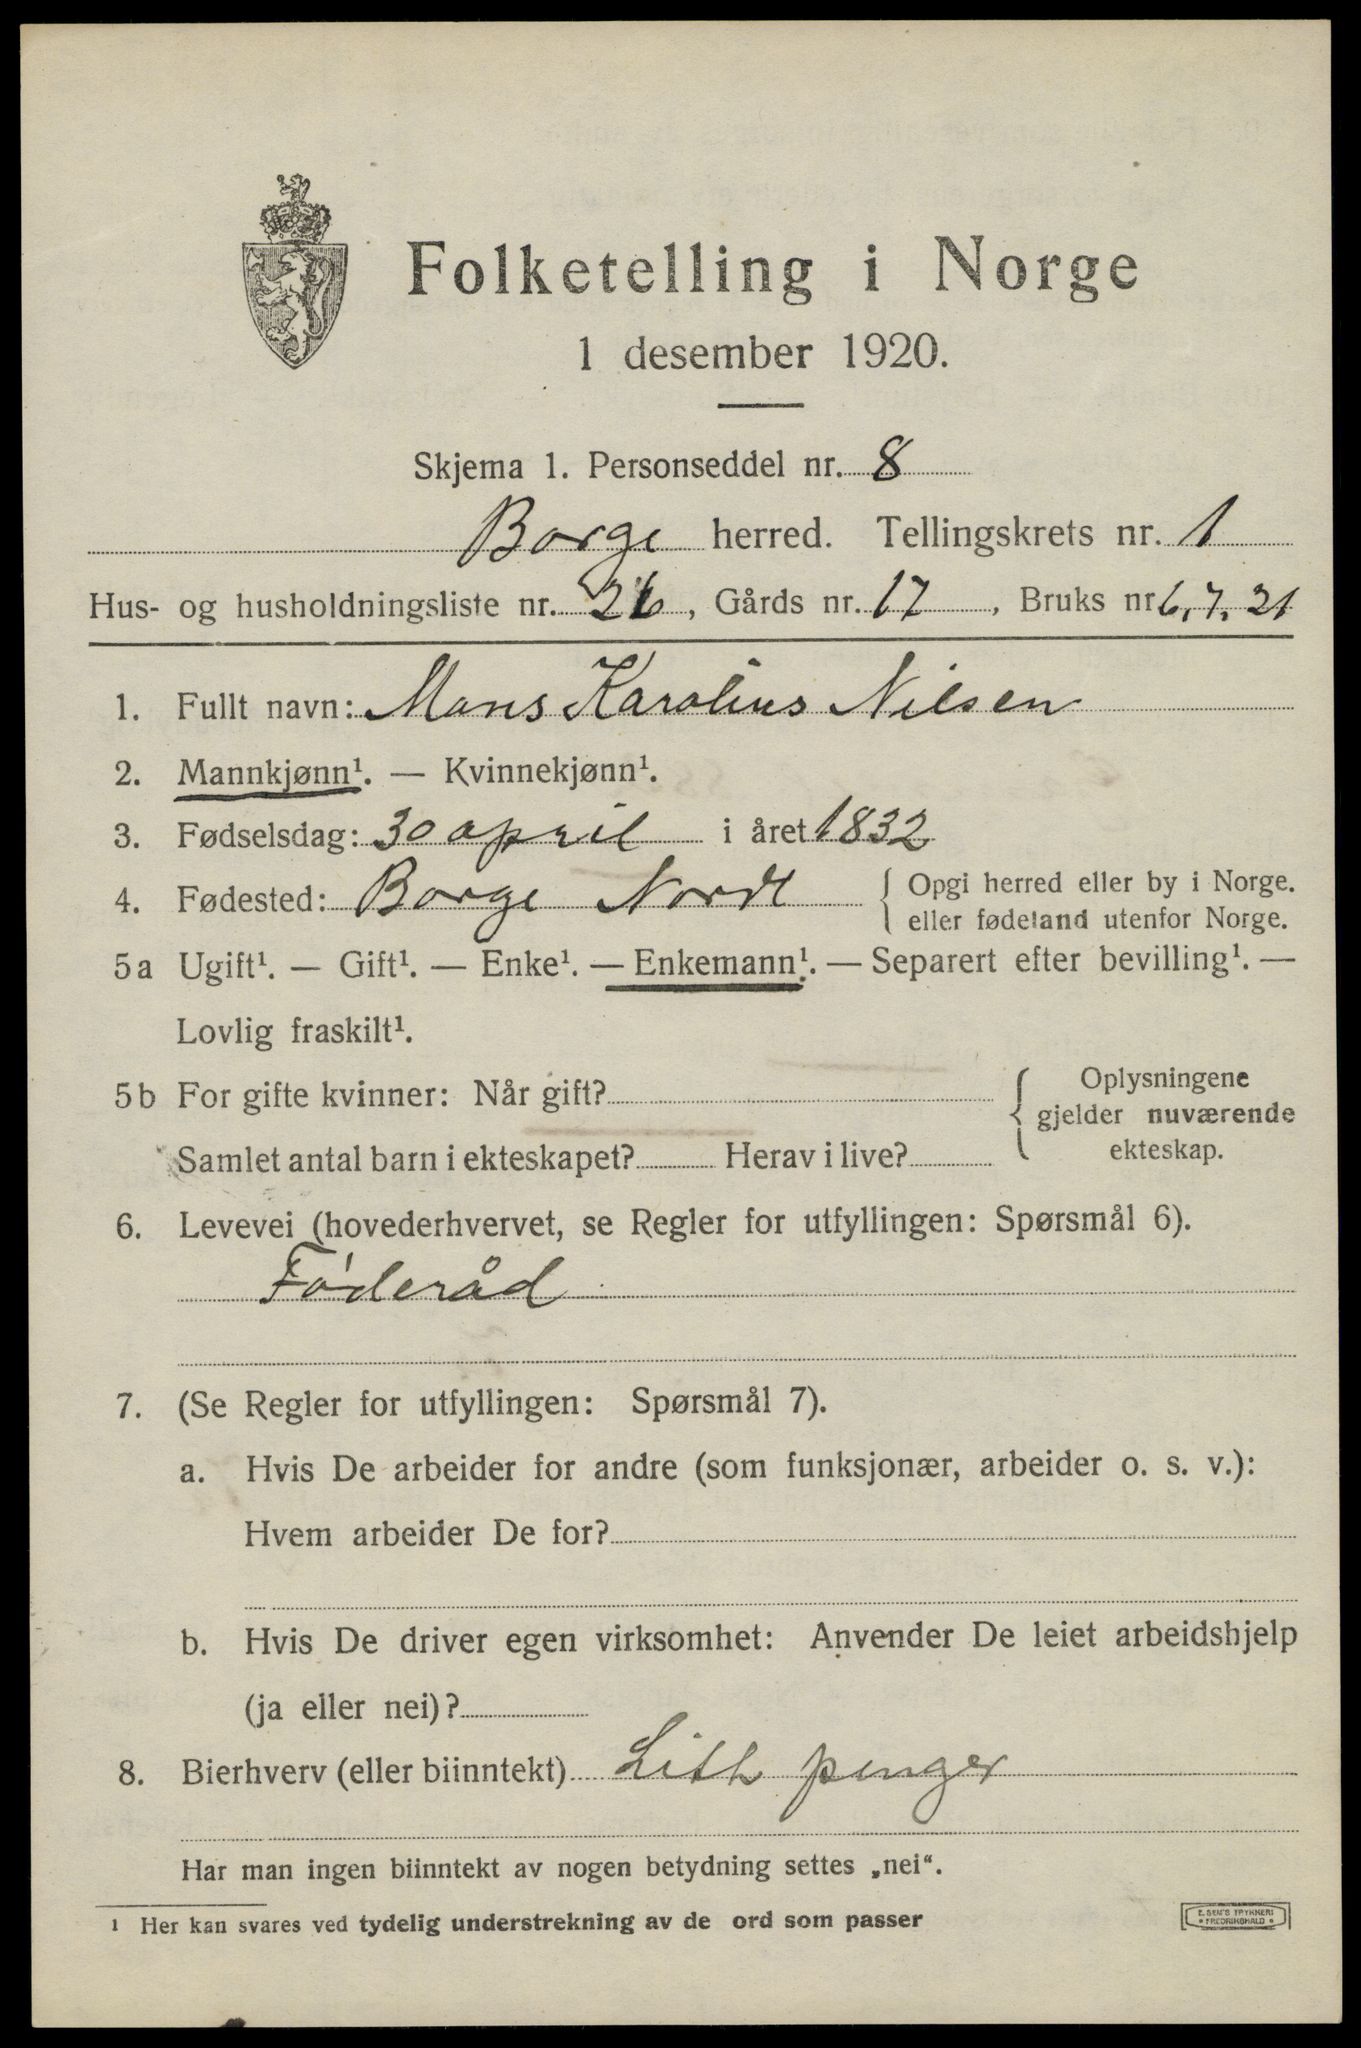 Folketelling i Norge
1 desember 1920.
Skjema 1. Personseddel nr. 8
Borge herred. Tellingskrets nr. 1
Hus- og husholdningsliste nr. 26, Gårds nr. 17, Bruks nr 6, 7, 21
1. Fullt navn: Mons Karolius Nilsen
2. Mannkjønn¹. — Kvinnekjønn¹.
3. Fødselsdag: 30 april i året 1832
4. Fødested: Borge Nordl { Opgi herred eller by i Norge.
eller fødeland utenfor Norge.
5a Ugift¹. — Gift¹. — Enke¹. — Enkemann¹. — Separert efter bevilling¹. —
Lovlig fraskilt¹.
5b For gifte kvinner: Når gift? { Oplysningene
gjelder nuværende
Samlet antal barn i ekteskapet? Herav i live? ekteskap.
6. Levevei (hovederhvervet, se Regler for utfyllingen: Spørsmål 6).
Føderåd
7. (Se Regler for utfyllingen: Spørsmål 7).
a. Hvis De arbeider for andre (som funksjonær, arbeider o. s. v.):
Hvem arbeider De for?
b. Hvis De driver egen virksomhet: Anvender De leiet arbeidshjelp
(ja eller nei)?
8. Bierhverv (eller biinntekt) Lith penger
Har man ingen biinntekt av nogen betydning settes „nei“.
¹ Her kan svares ved tydelig understrekning av de ord som passer
E. SEM'S TRYKKERI
• FREDRIKSHALD •